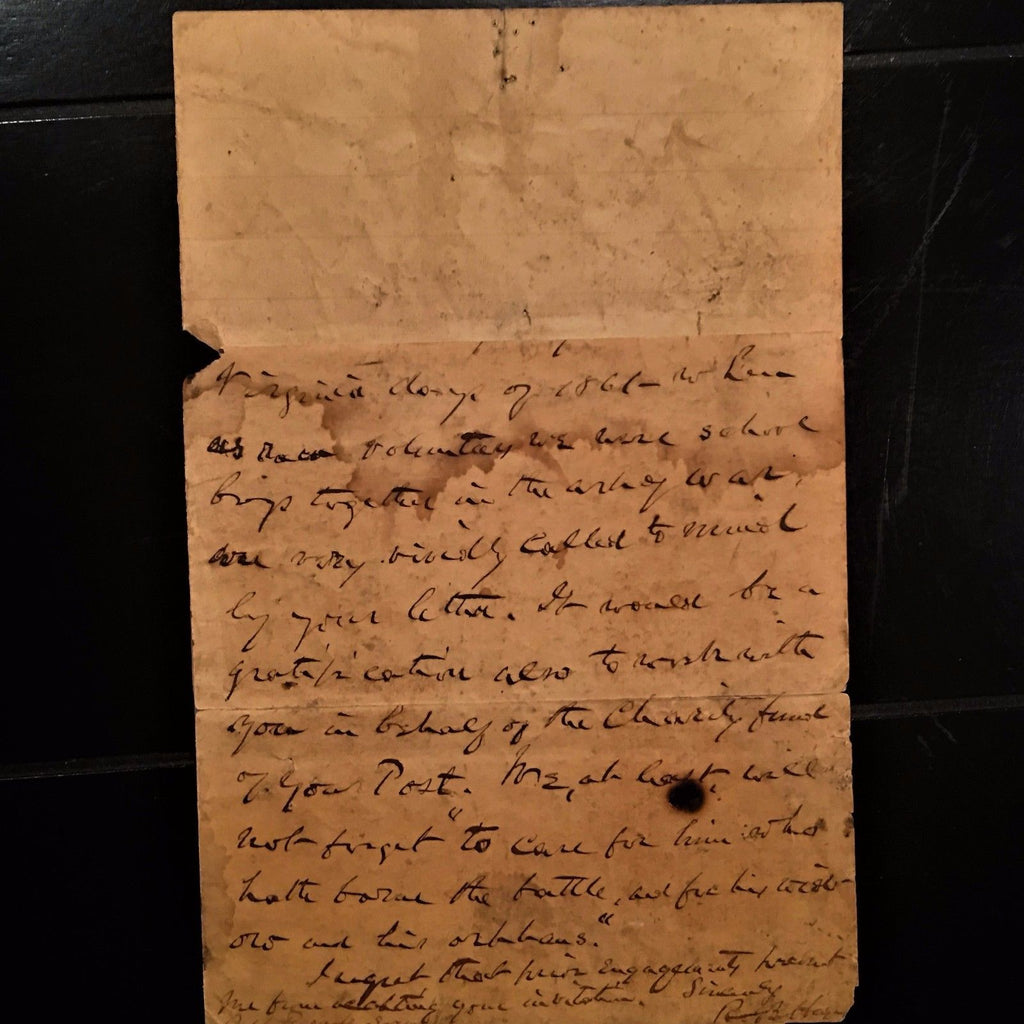 Virginia days of 1861 — when
as raw volunteers we were school
boys together in the art of war,
are very vividly called to mind
by your letter. It would be a
gratification also to work with
you in behalf of the Charity fund
of your Post. We, at least, will
not forget "to care for him who
hath borne the battle, and for his wid-
ow and his orphans."
I regret that prior engagements prevent
me from accepting your invitation. Sincerely